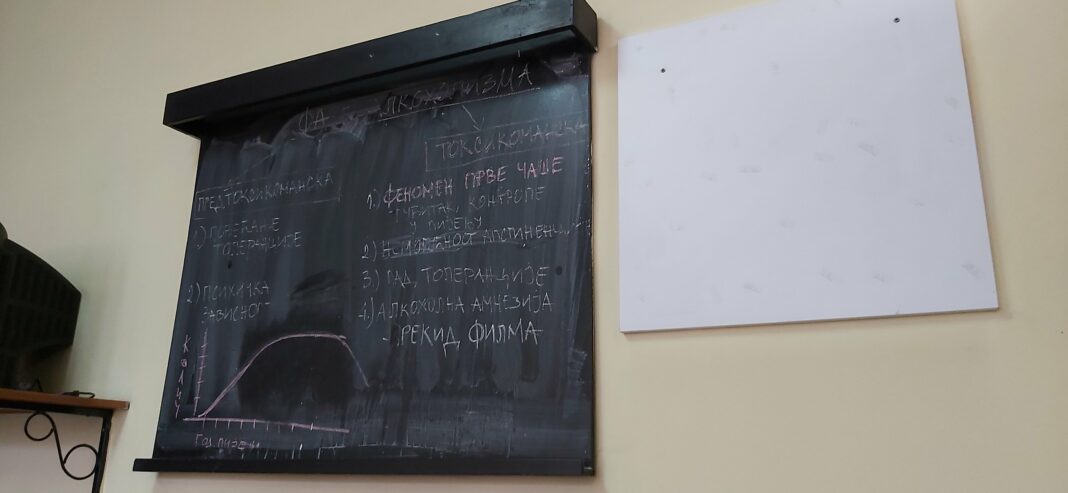 ФА АЛКОХОЛИЗМА
ПРЕДТОКСИКОМАНСКА
1.) ПОВЕЋАЊЕ
ТОЛЕРАНЦИЈЕ
2.) ПСИХИЧКА
ЗАВИСНОСТ
ТОКСИКОМАНСКА
1.) ФЕНОМЕН ПРВЕ ЧАШЕ
- ГУБИТАК КОНТРОЛЕ
У ПИЈЕЊУ
2.) НЕМОГУЋНОСТ АПСТИНЕНЦИЈЕ
3.) ПАД ТОЛЕРАНЦИЈЕ
4.) АЛКОХОЛНА АМНЕЗИЈА
- "ПРЕКИД ФИЛМА"
Год.